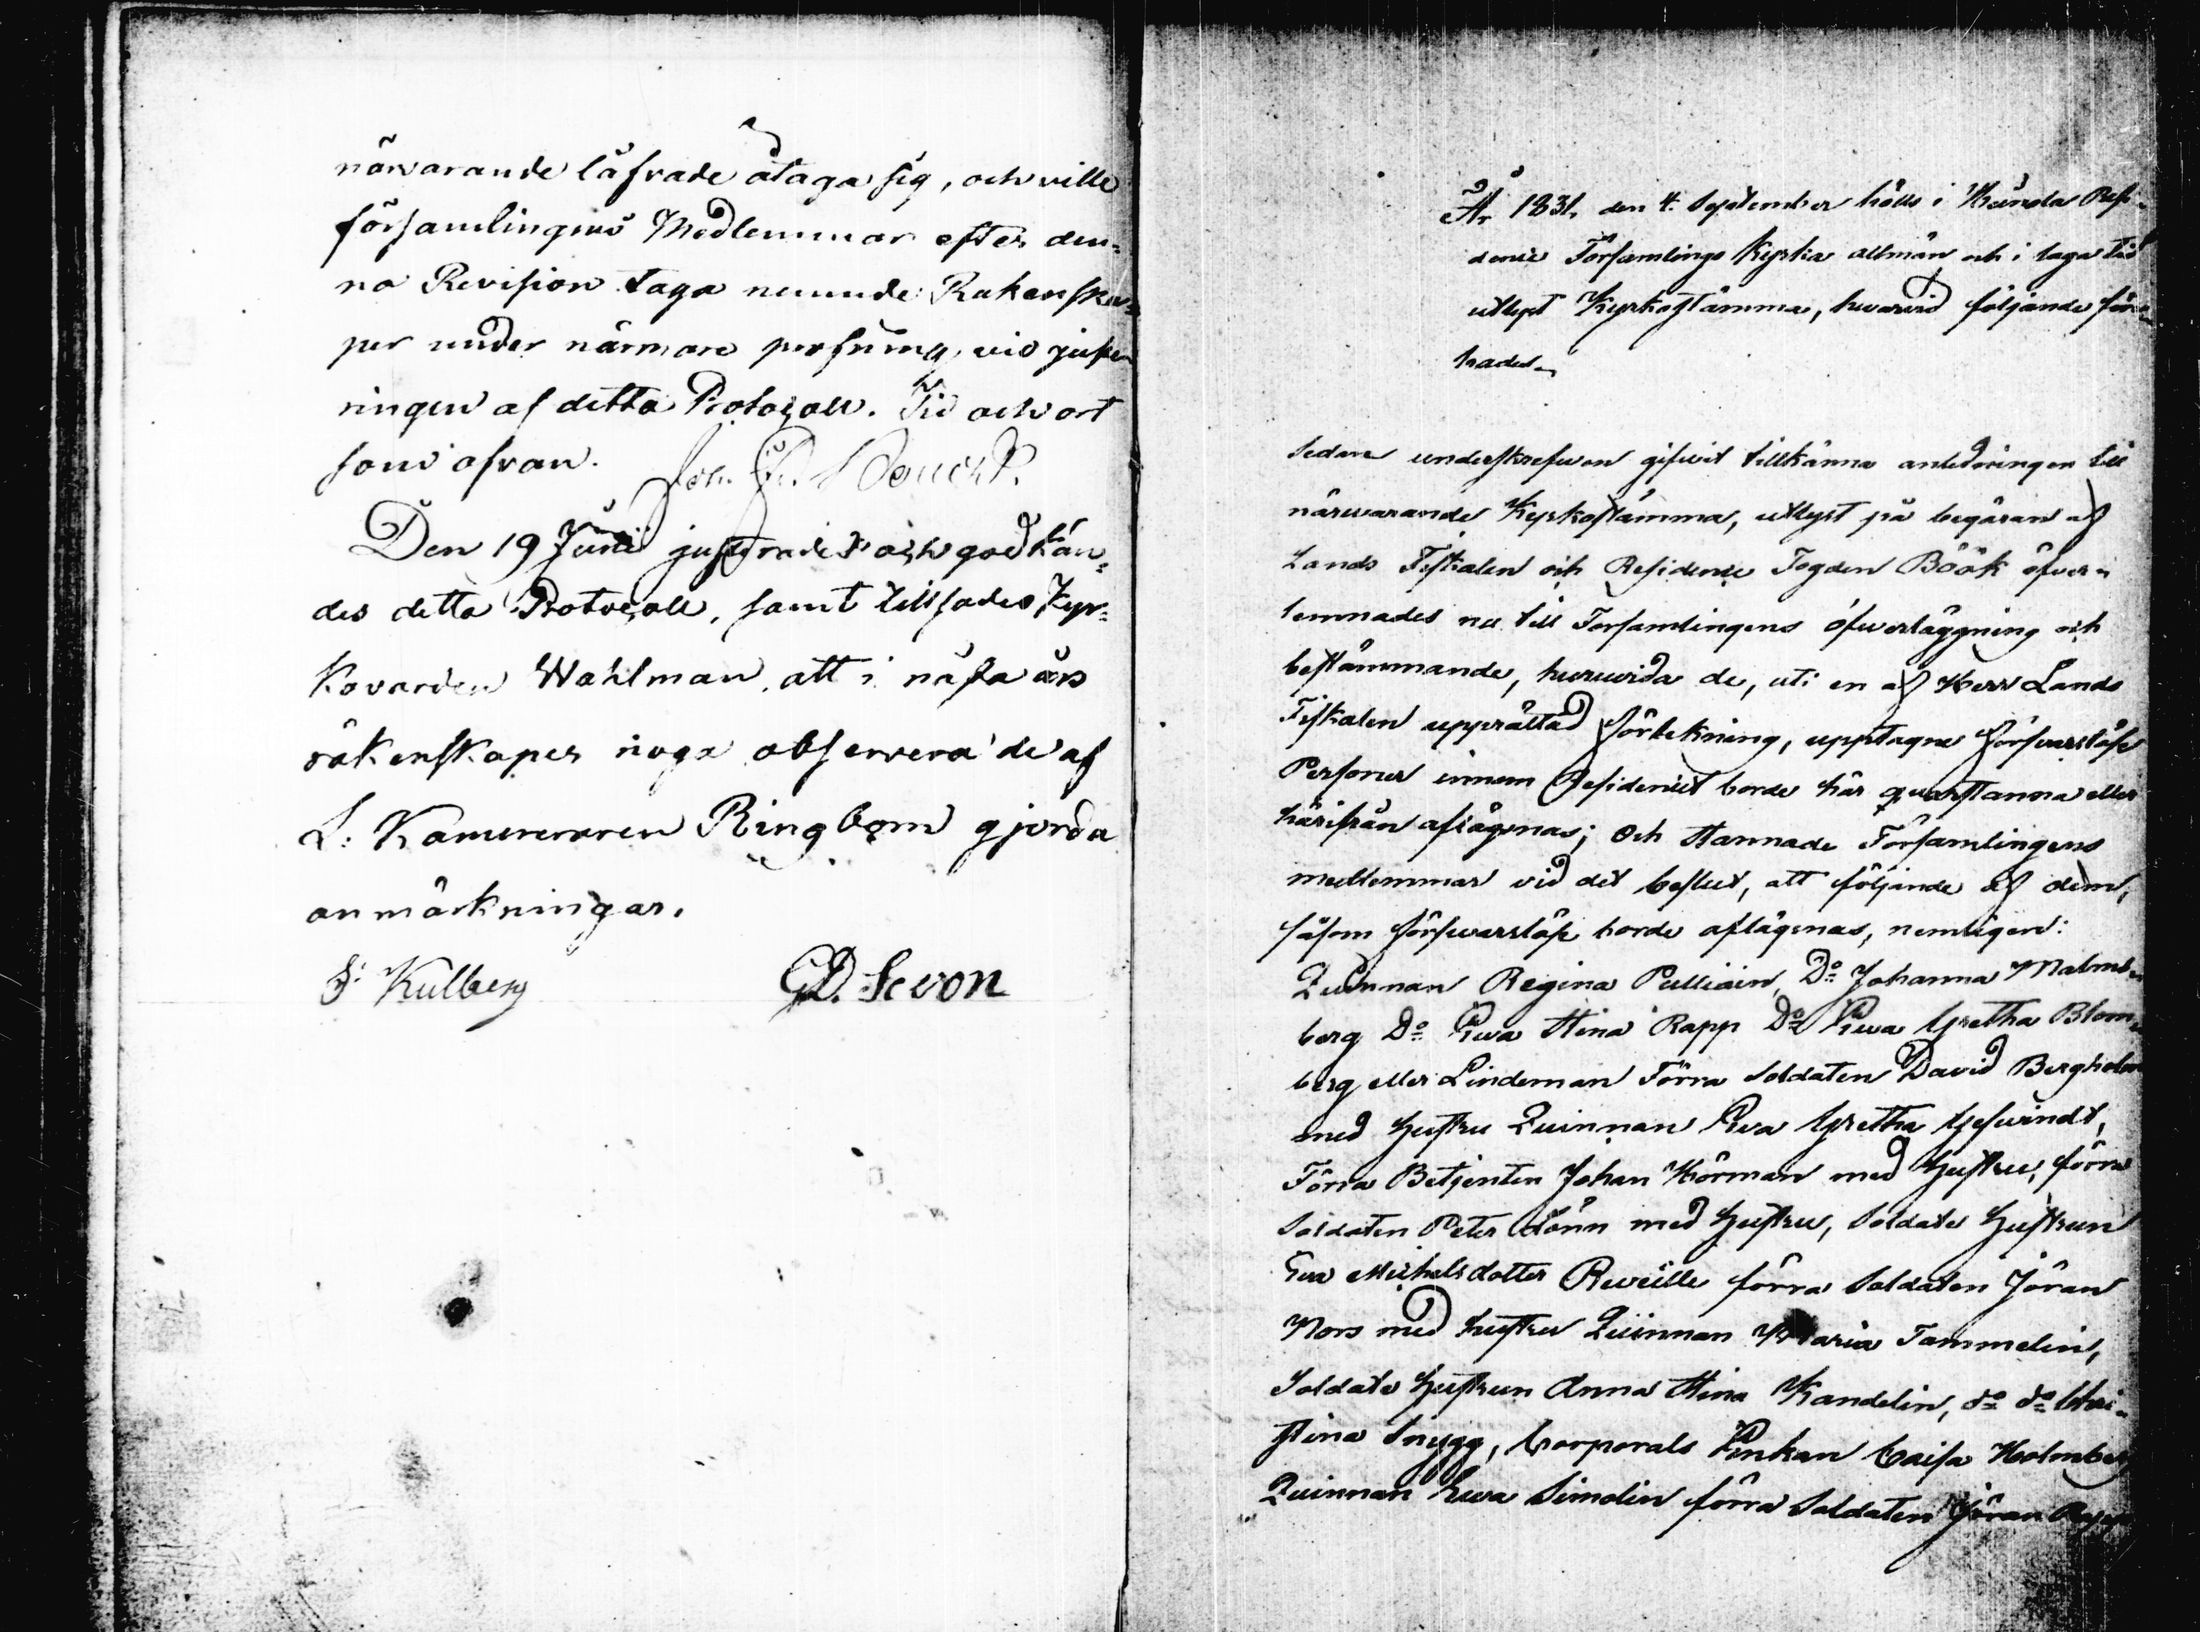 närvarande läfvade åtaga sig, och ville
församlingens Medlemmar efter den-
na Revision taga nemnde Räkenska-
per under närmare profning vid juste
ringen af detta Protocoll. Tid och ort
som ofvan.
Den 19 Junii justerades och godkän-
des detta Protocoll, samt tillsades Kyr-
kovarden Wahlman att i nästa års
räkenskaper noga observera de af
L: Kamereraren Ringbom gjorda
anmärkningar.
Kulberg GD. Sevon
År 1831 den 4. September hölls i Resi-
dence Församlings Kyrka allmän och i laga tid
utlyst Kyrkostämma, hvarvid följande före-
hades.
Sedan underskrefven gifvit tillkänna anledningen till
närwarande Kyrkostämma, utlyst på begäran af
Lands Fiskalen och Residence Fogden Böök öfver-
lemnades nu till Församlingens öfwerläggning och
bestämmande, huruwida de, uti en af Herr Lands
Fiskalen upprättad förtekning, upptagne försvarslöse
Personer innom Residencet borde här qwarstanna eller
härifrån aflägsnas; och stannade Församlingens
medlemmar vid det beslut, att följande af dem,
såsom försvarslöse borde aflägsnas, nemligen:
Quinnan Regina Pulliain, Do Johanna Malm-
berg Do Ewa Stina Rapp Do Ewa Gretha Blom-
berg eller Lindeman Förra Soldaten David Bergholm
med hustru Quinnan Ewa Gretha Geswindt,
Förra Betjenten Johan Hörman med hustru, förra
Soldaten Peter Lönn med hustru, Soldats Hustrun
Ewa Michelsdotter Reweille förra Soldaten Jöran
Nors med hustru Quinnan Maria Tammelin,
Soldats hustrun Anna Stina Kandelin, do do Chri-
stina Snygg, Corporals Enkan Caisa Holmberg
Quinnan Ewa Simolin förra Soldaten Jöran